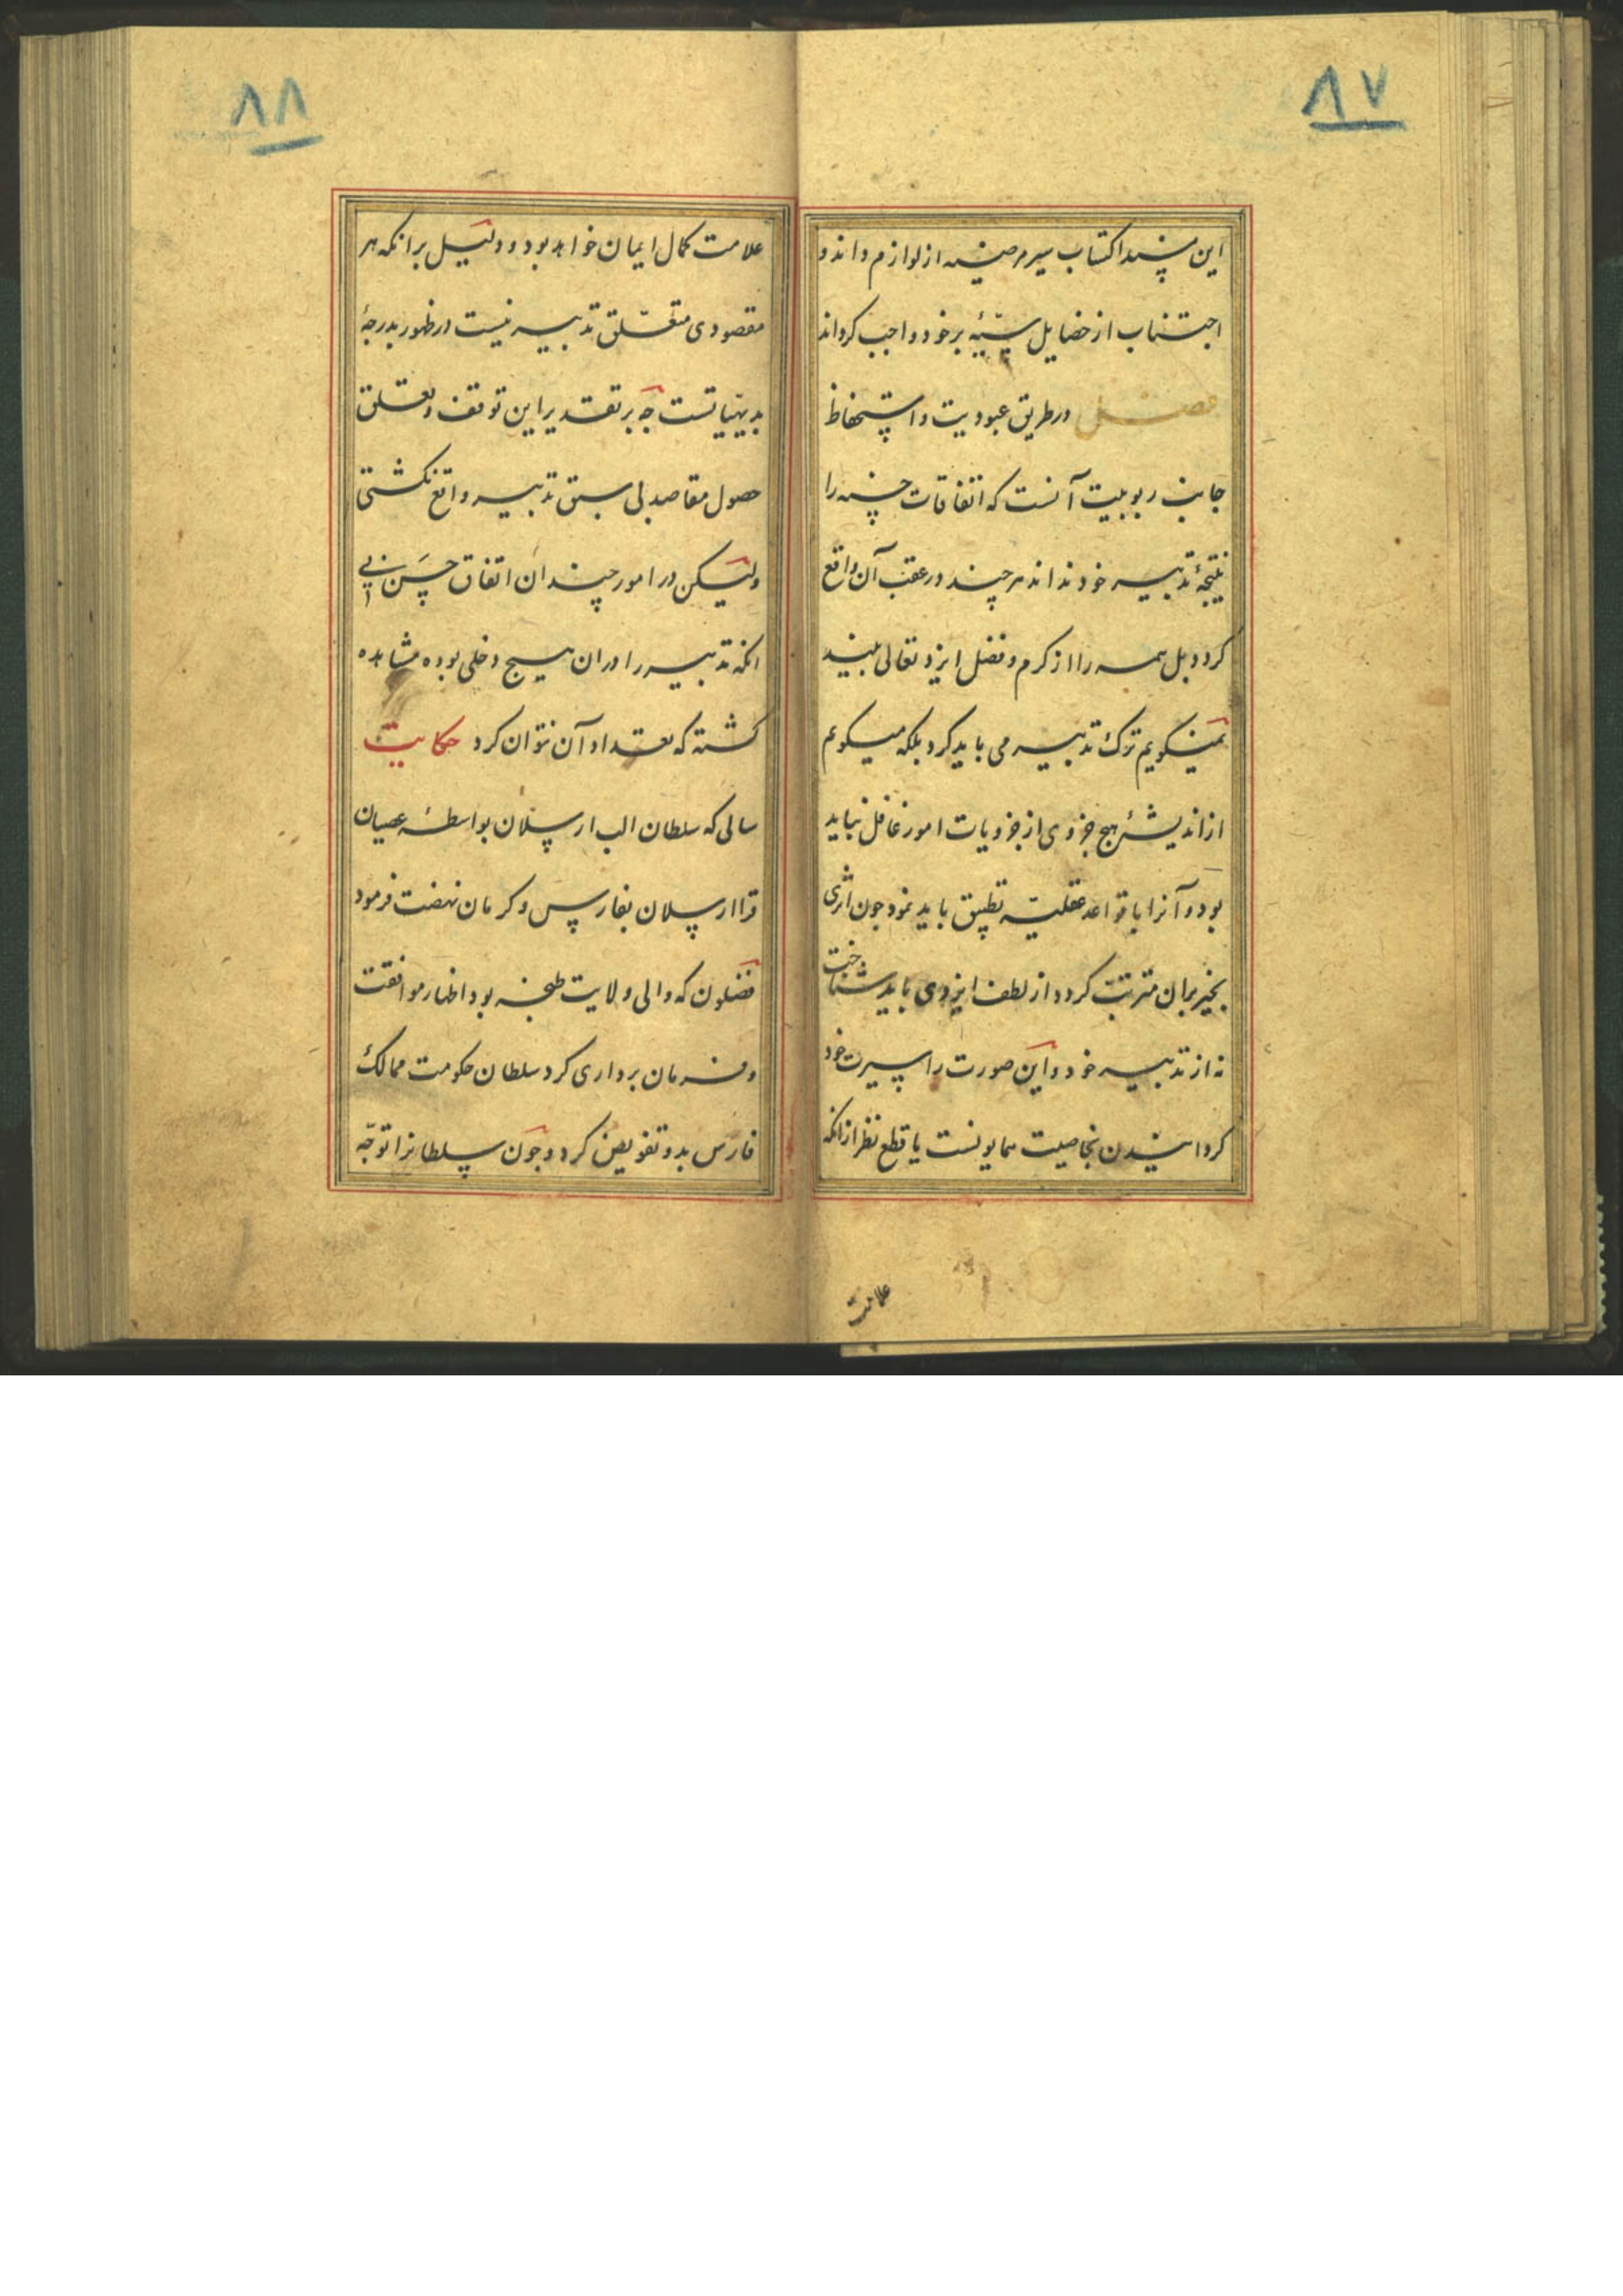 ۸۷
این پسند اکتساب سیر مرضیه از لوازم داند و
اجتناب از خصایل سیّئه بر خود واجب کرداند
فصل در طریق عبودیت و استحفاظ
جانب ربوبیت آنست که اتفاقات حسنه را
نتیجهٔ تدبیر خود نداند هر چند در عقب آن واقع
کردد بل همه را از کرم و فضل ایزد تعالی بیند
نمیکویم ترک تدبیر می باید کرد بلکه میکویم
از اندیشهٔ هیج جزوی از جزویات امور غافل نباید
بود و آنرا با قواعد عقلیّه تطبیق باید نمود جون اثری
بخیر بران مترتب کردد از لطف ایزدی باید شناخت
نه از تدبیر خود و این صورت را سیرت خود
کردانیدن بخاصیت همایونست با قطع نظر از انکه
علامت
۸۸
علامت کمال ایمان خواهد بود و دلیل بر انکه هر
مقصودی متعلّق تدبیر نیست در ظهور بدرجهٔ
بدیهیاتست جه بر تقدیر این توقف و تعلق
حصول مقاصد بی سبق تدبیر واقع نکشتی
ولیکن در امور چندان اتفاق حسن بی
انکه تدبیر را دران هیج دخلی بوده مشاهده
کشته که تعداد آن نتوان کرد حکایت
سالی که سلطان الب ارسلان بواسطهٔ عصیان
قرا ارسلان بفارس و کرمان نهضت فرمود
فضلون که والی ولایت طبخه بود اظهار موافقت
و فرمان برداری کرد سلطان حکومت ممالک
فارس بدو تفویض کرد و جون سلطانرا توجّه